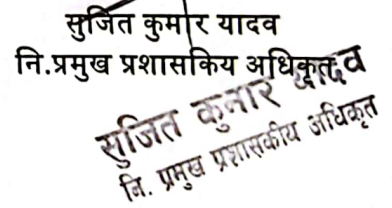 सुजित कुमार यादव
नि.प्रमुख प्रशासकिय अधिकृत
सुजित कुमार यादव
नि. प्रमुख प्रशासकीय अधिकृत